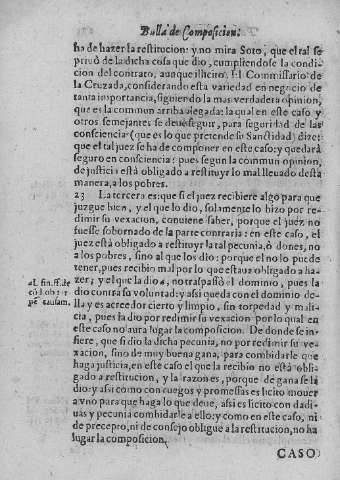 Bulla de Composicion:
ha de hazer la restitucion: y no mira Soto, que el tal se
priuò de la dicha cosa que dio, cumpliendose la condi
cion del contrato, aunque illicito. El Commissario de
la Cruzada, considerando esta variedad en negocio de
tanta importancia, siguiendo la mas verdadera opinion,
que es la commun arriba alegada: la qual en este caso y
otros semejantes se deue seguir, para seguridad de las
consciencias (que es lo que pretende su Sanctidad) dize:
que el tal juez se ha de componer en este caso: y quedarà
seguro en consciencia: pues segun la commun opinion,
de justicia està obligado a restituyr lo mal lleuado desta
manera, a los pobres.
23 La tercera es: que si el juez recibiere algo para que
juzgue bien, y el que lo dio, solamente lo hizo por re-
dimir su vexacion, conuiene saber, porque el juez no
fuesse sobornado de la parte contraria: en este caso, el
juez està obligado a restituyr la tal pecunia, ò dones, no
a los pobres, sino al que los dio: porque el no lo puede
tener, pues recibio mal por lo que estaua obligado a ha-
zer; y el que la dio a, no traspassò el dominio, pues la
dio contra su voluntad: y assi queda con el dominio de-
lla y es acreedor cierto y limpio, sin torpedad y mali-
cia, pues la dio por redimir su vexacion por lo qual en
este caso no aura lugar la composicion. De donde se in-
fiere, que si dio la dicha pecunia, no por redimir su ve-
xacion, sino de muy buena gana, para combidarle que
haga justicia, en este caso el que la recibio no està obli-
gado a restitucion, y la razon es, porque de gana se la
dio: y assi como con ruegos y promessas es licito mouer
a vno para que haga lo que deue, assi es licito con dadi-
uas y pecunia combidarle a ello: y como en este caso, ni
de precepto, ni de consejo obligue a la restitucion, no ha
lugar la composicion.
aL. fin. ff. de
cō d. ob tur
pē causam.
CASO